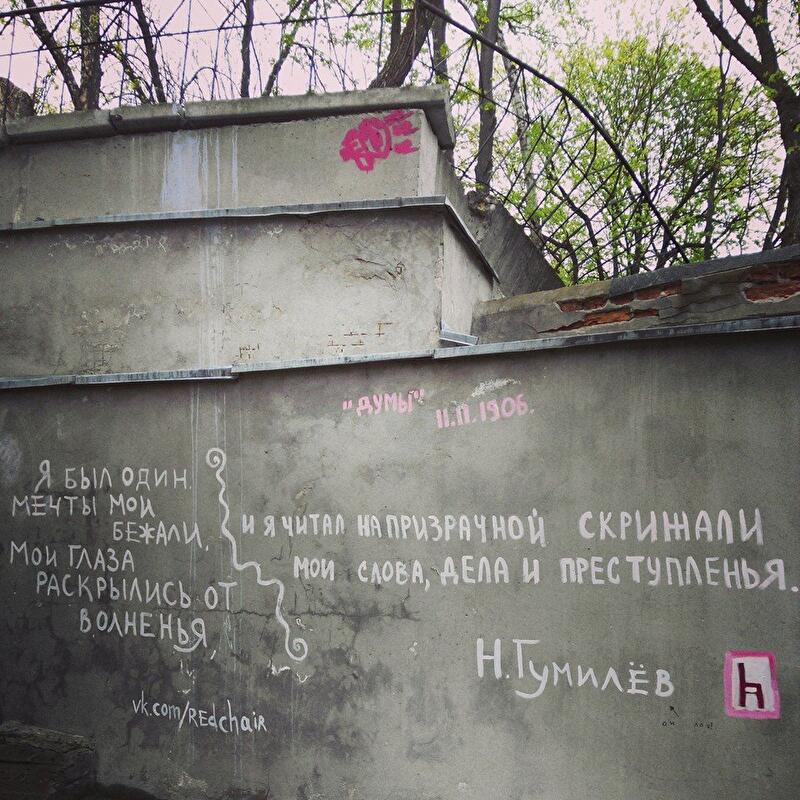 "ДУМЫ"
11.П.1906.
Я БЫЛ ОДИН.
МЕЧТЫ МОИ
БЕЖАЛИ,
МОИ ГЛАЗА
РАСКРЫЛИСЬ ОТ
ВОЛНЕНЬЯ,
И Я ЧИТАЛ НА ПРИЗРАЧНОЙ СКРИЖАЛИ
МОИ СЛОВА, ДЕЛА И ПРЕСТУПЛЕНЬЯ.
Н.Гумилёв
vk.com/REdchaiR